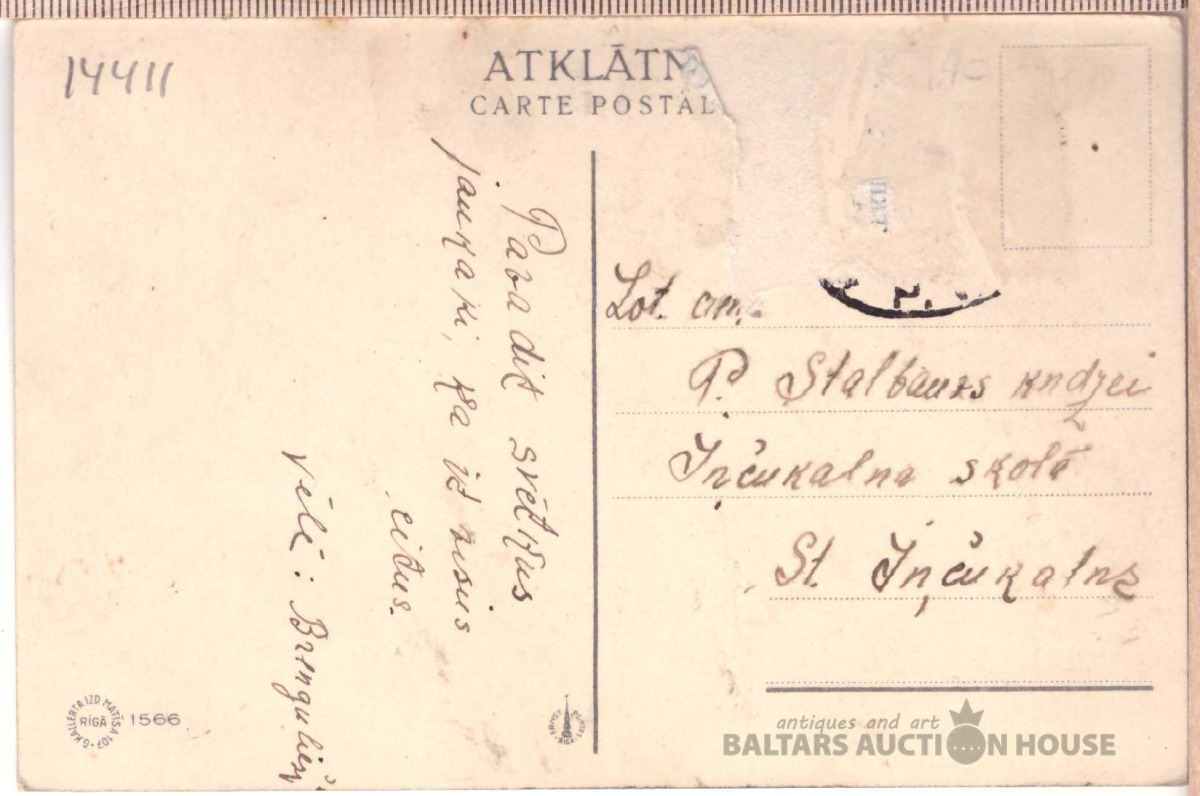 14411
ATKLĀTN
CARTE POSTAL
Pavadit svētkus
jaukaki, ka iz visus
citus.
Vēlē: Brengulieši
Lot. cm.
P. Stalbaurs kndzei
Inčukalna skolā
St Inčukalns
G. KALLERTA IZD MATĪSA 107
RĪGĀ
1566
RĪGA
antiques and art
BALTARS AUCTION HOUSE